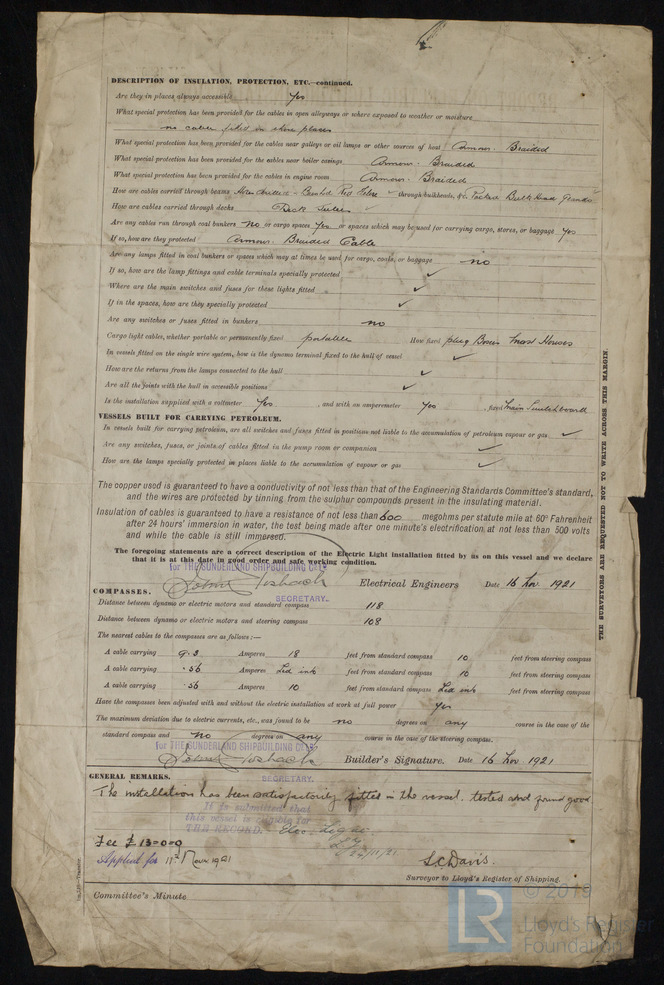 DESCRIPTION OF INSULATION, PROTECTION, ETC.—continued.
Are they in places always accessible Yes
What special protection has been provided for the cables in open alleyways or where exposed to weather or moisture
no cables fitted in these places
What special protection has been provided for the cables near galleys or oil lamps or other sources of heat Armour. Braided
What special protection has been provided for the cables near boiler casings Armour. Braided
What special protection has been provided for the cables in engine room Armour. Braided
How are cables carried through beams Bushed Red Fibre through bulkheads, &c. Packed Bulk Head Glands
How are cables carried through decks Deck Tubes
Are any cables run through coal bunkers No or cargo spaces Yes or spaces which may be used for carrying cargo, stores, or baggage Yes
If so, how are they protected Armour. Braided Cable
Are any lamps fitted in coal bunkers or spaces which may at times be used for cargo, coals, or baggage no
If so, how are the lamp fittings and cable terminals specially protected ✓
Where are the main switches and fuses for these lights fitted ✓
If in the spaces, how are they specially protected ✓
Are any switches or fuses fitted in bunkers no
Cargo light cables, whether portable or permanently fixed portable How fixed plug Boxes Mast Houses
In vessels fitted on the single wire system, how is the dynamo terminal fixed to the hull of vessel ✓
How are the returns from the lamps connected to the hull ✓
Are all the joints with the hull in accessible positions ✓
Is the installation supplied with a voltmeter Yes, and with an amperemeter Yes, fixed Main Switchboard
VESSELS BUILT FOR CARRYING PETROLEUM.
In vessels built for carrying petroleum, are all switches and fuses fitted in positions not liable to the accumulation of petroleum vapour or gas ✓
Are any switches, fuses, or joints of cables fitted in the pump room or companion ✓
How are the lamps specially protected in places liable to the accumulation of vapour or gas ✓
The copper used is guaranteed to have a conductivity of not less than that of the Engineering Standards Committee's standard,
and the wires are protected by tinning from the sulphur compounds present in the insulating material.
Insulation of cables is guaranteed to have a resistance of not less than 600 megohms per statute mile at 60° Fahrenheit
after 24 hours' immersion in water, the test being made after one minute's electrification, at not less than 500 volts
and while the cable is still immersed.
The foregoing statements are a correct description of the Electric Light installation fitted by us on this vessel and we declare
that it is at this date in good order and safe working condition.
for THE SUNDERLAND SHIPBUILDING Co LD
Electrical Engineers Date 16 Nov 1921
SECRETARY.
COMPASSES.
Distance between dynamo or electric motors and standard compass 118
Distance between dynamo or electric motors and steering compass 108
The nearest cables to the compasses are as follows:—
A cable carrying 9.3 Amperes 18 feet from standard compass 10 feet from steering compass
A cable carrying .56 Amperes Led into feet from standard compass 10 feet from steering compass
A cable carrying .56 Amperes 10 feet from standard compass Led into feet from steering compass
Have the compasses been adjusted with and without the electric installation at work at full power Yes
The maximum deviation due to electric currents, etc., was found to be no degrees on any course in the case of the
standard compass and No degrees on any course in the case of the steering compass.
for THE SUNDERLAND SHIPBUILDING Co LD
Builder's Signature. Date 16 Nov 1921
SECRETARY.
GENERAL REMARKS.
The installation has been satisfactorily fitted in the vessel, tested and found good
It is submitted that
this vessel is eligible for
THE RECORD. Elec. Light.
Fee £ 13=0=0
Applied for 11th Nov 1921
S.C. Davis.
Surveyor to Lloyd's Register of Shipping.
Committee's Minute
THE SURVEYORS ARE REQUESTED NOT TO WRITE ACROSS THIS MARGIN.
LR
© 2019
Lloyd's Register
Foundation